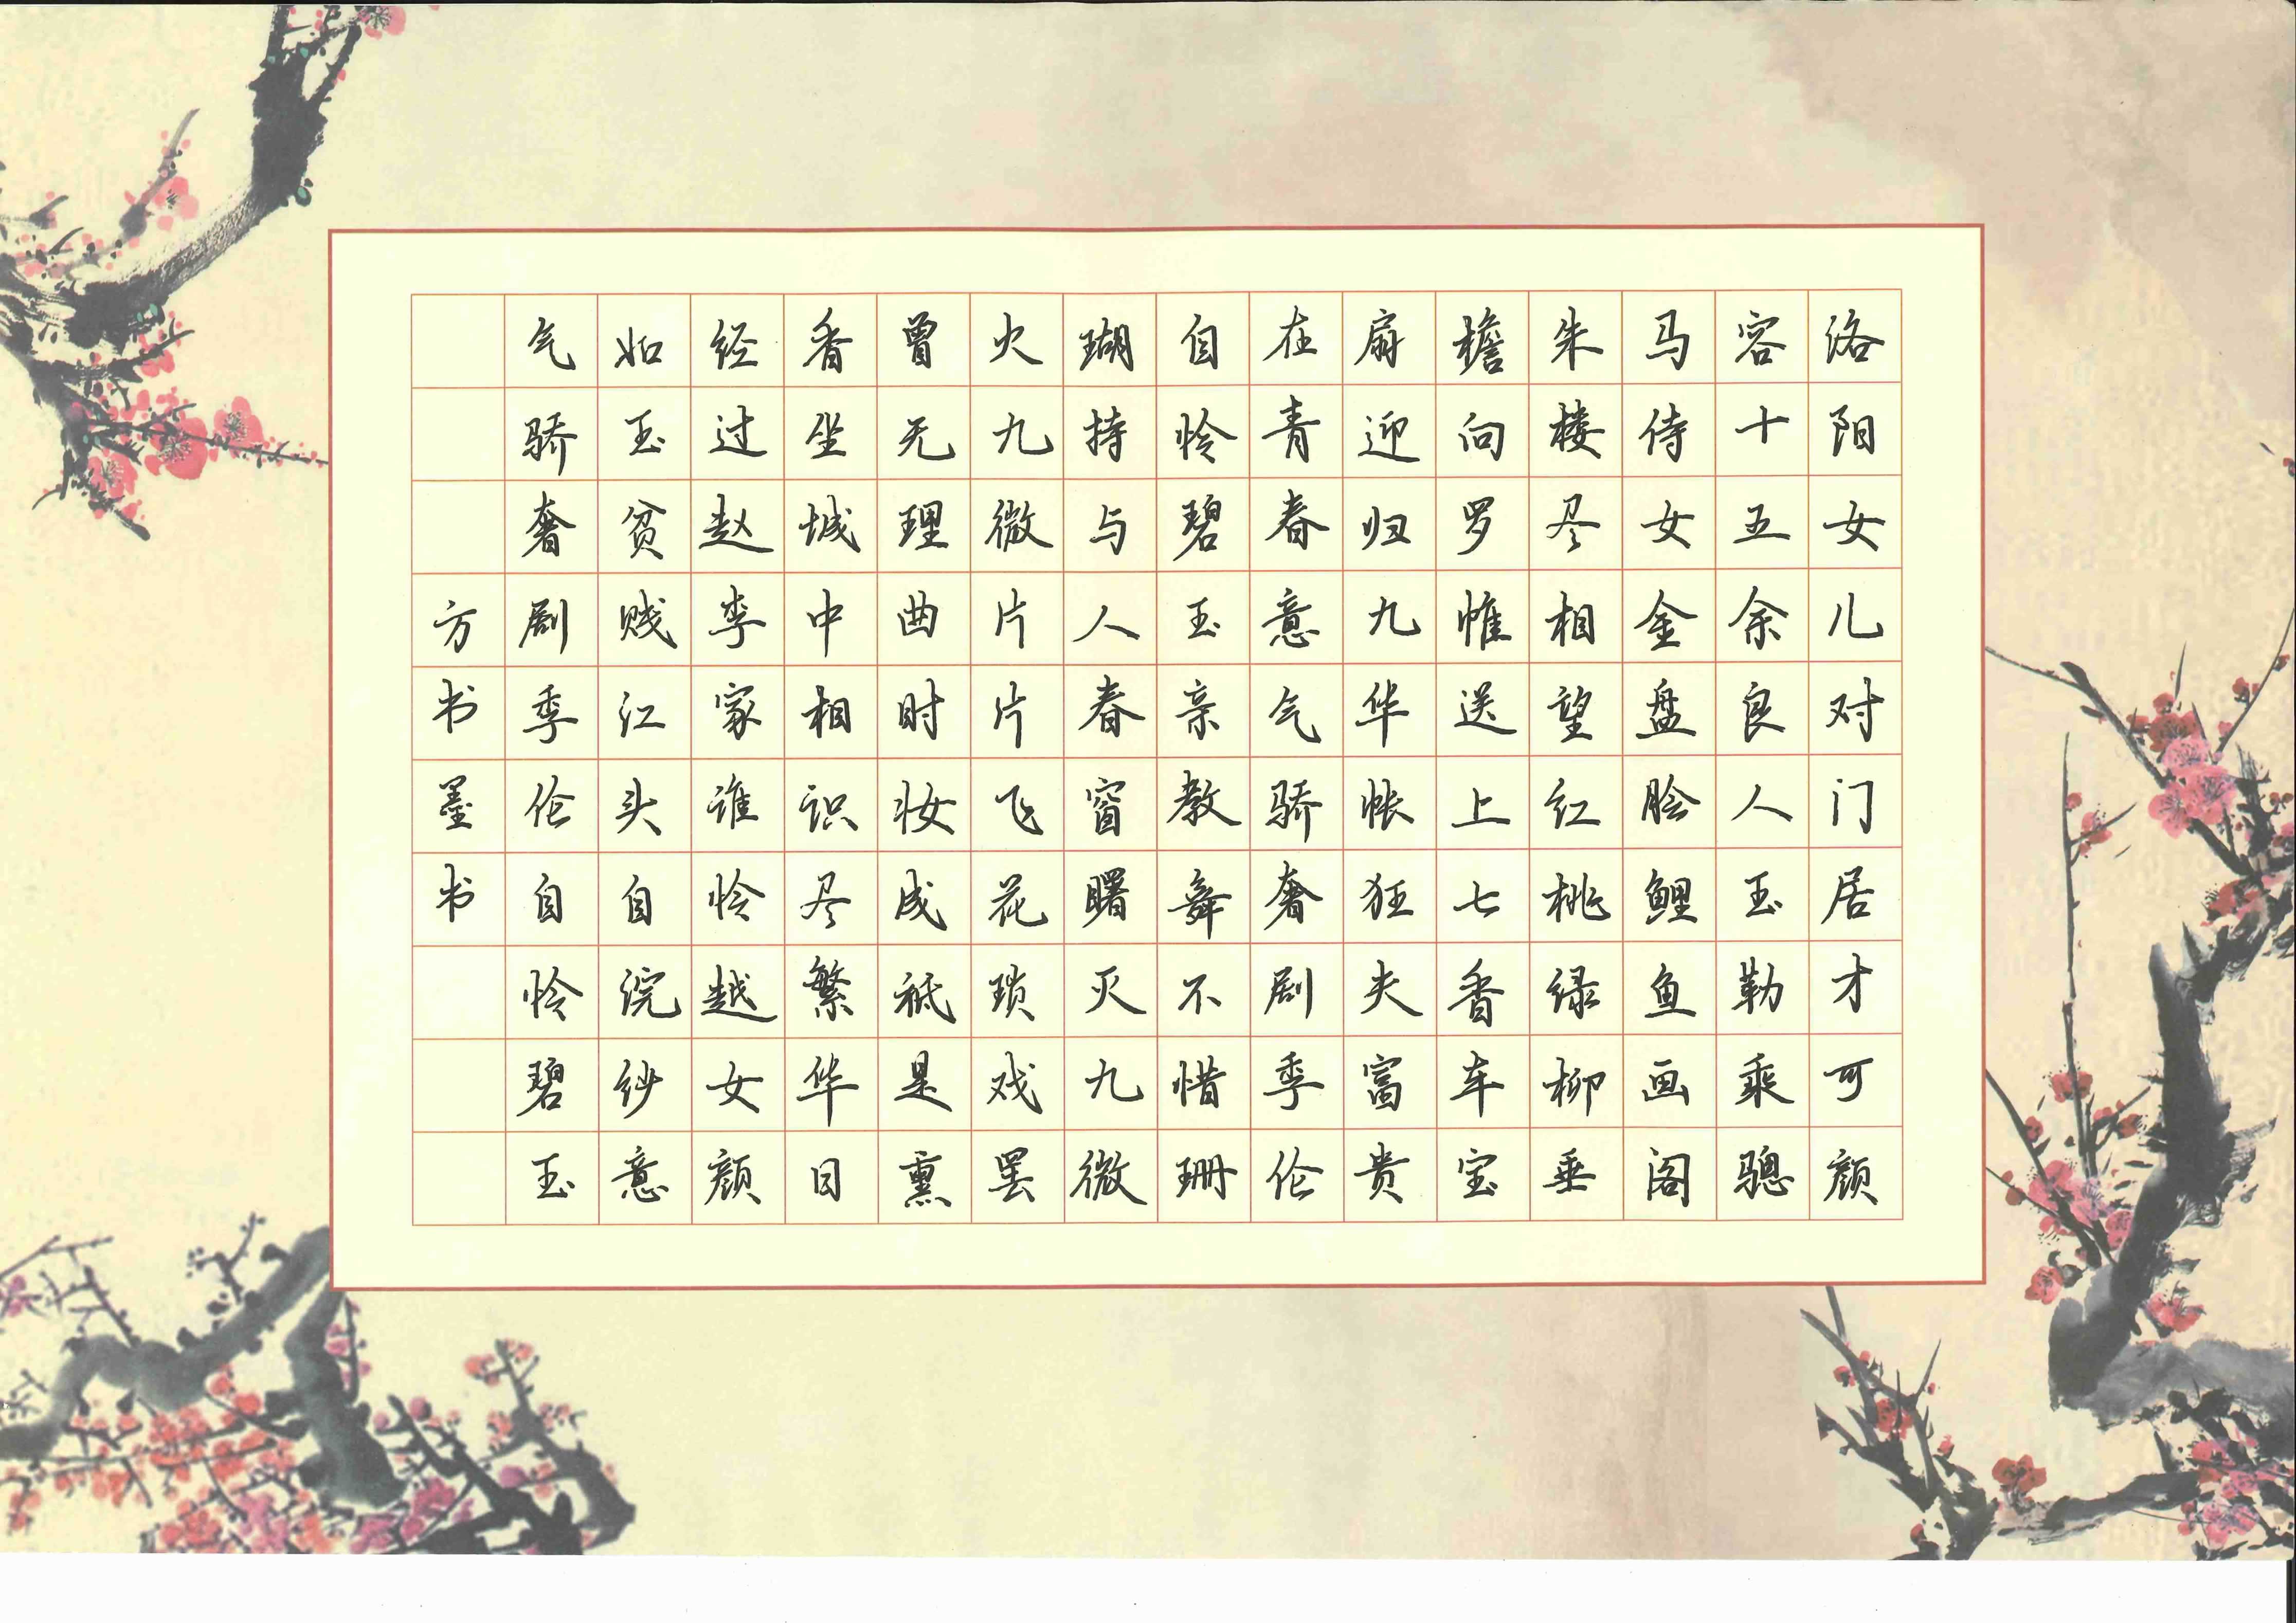 洛阳女儿对门居才可颜
容十五余良人玉勒乘骢
马侍女金盘脍鲤鱼画阁
朱楼尽相望红桃绿柳垂
檐向罗帷送上七香车宝
扇迎归九华帐狂夫富贵
在青春意气骄奢剧季伦
自怜碧玉亲教舞不惜珊
瑚持与人春窗曙灭九微
火九微片片飞花琐戏罢
曾无理曲时妆成祗是熏
香坐城中相识尽繁华日
经过赵李家谁怜越女颜
如玉贫贱江头自浣纱意
气骄奢剧季伦自怜碧玉
方书墨书